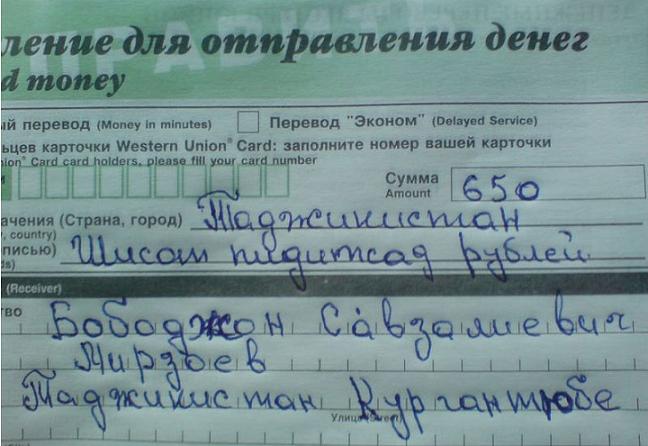 ПРАВ
ление для отправления денег
d money
ый перевод (Money in minutes) Перевод "Эконом" (Delayed Service)
ьцев карточки Western Union® Card: заполните номер вашей карточки
nion® Card card holders, please fill your card number
Сумма
Amount 650
ачения (Страна, город) Таджикистан
, country)
писью) Шисот пидитсад рублей
ds)
(Receiver)
тво Бободжон Савзалиевич
Мирзоев
Таджикистан Кургантюбе
Улица (Street)